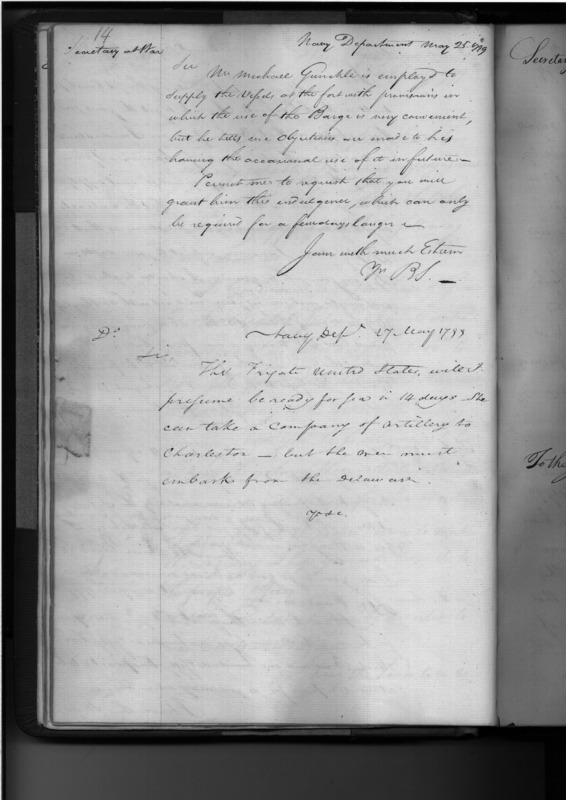 14
Secretary at War
Navy Department May 25th 1799
Sir
Mr Michael Gunckle is employed to
supply the Vessels at the fort with provisions in
which the use of the Barge is very convenient,
but he tells me objections are made to his
having the occasional use of it in future —
Permit me to request that you will
grant him this indulgence, which can only
be required for a few days longer —
I am with much Esteem
Yr BS. —
Do
Navy Dept. 27 May 1799
Sir,
The Frigate United States, will I
presume be ready for sea in 14 days She
can take a Company of Artillery to
Charleston — but the men must
embark from the Delaware.
Secretary
To the